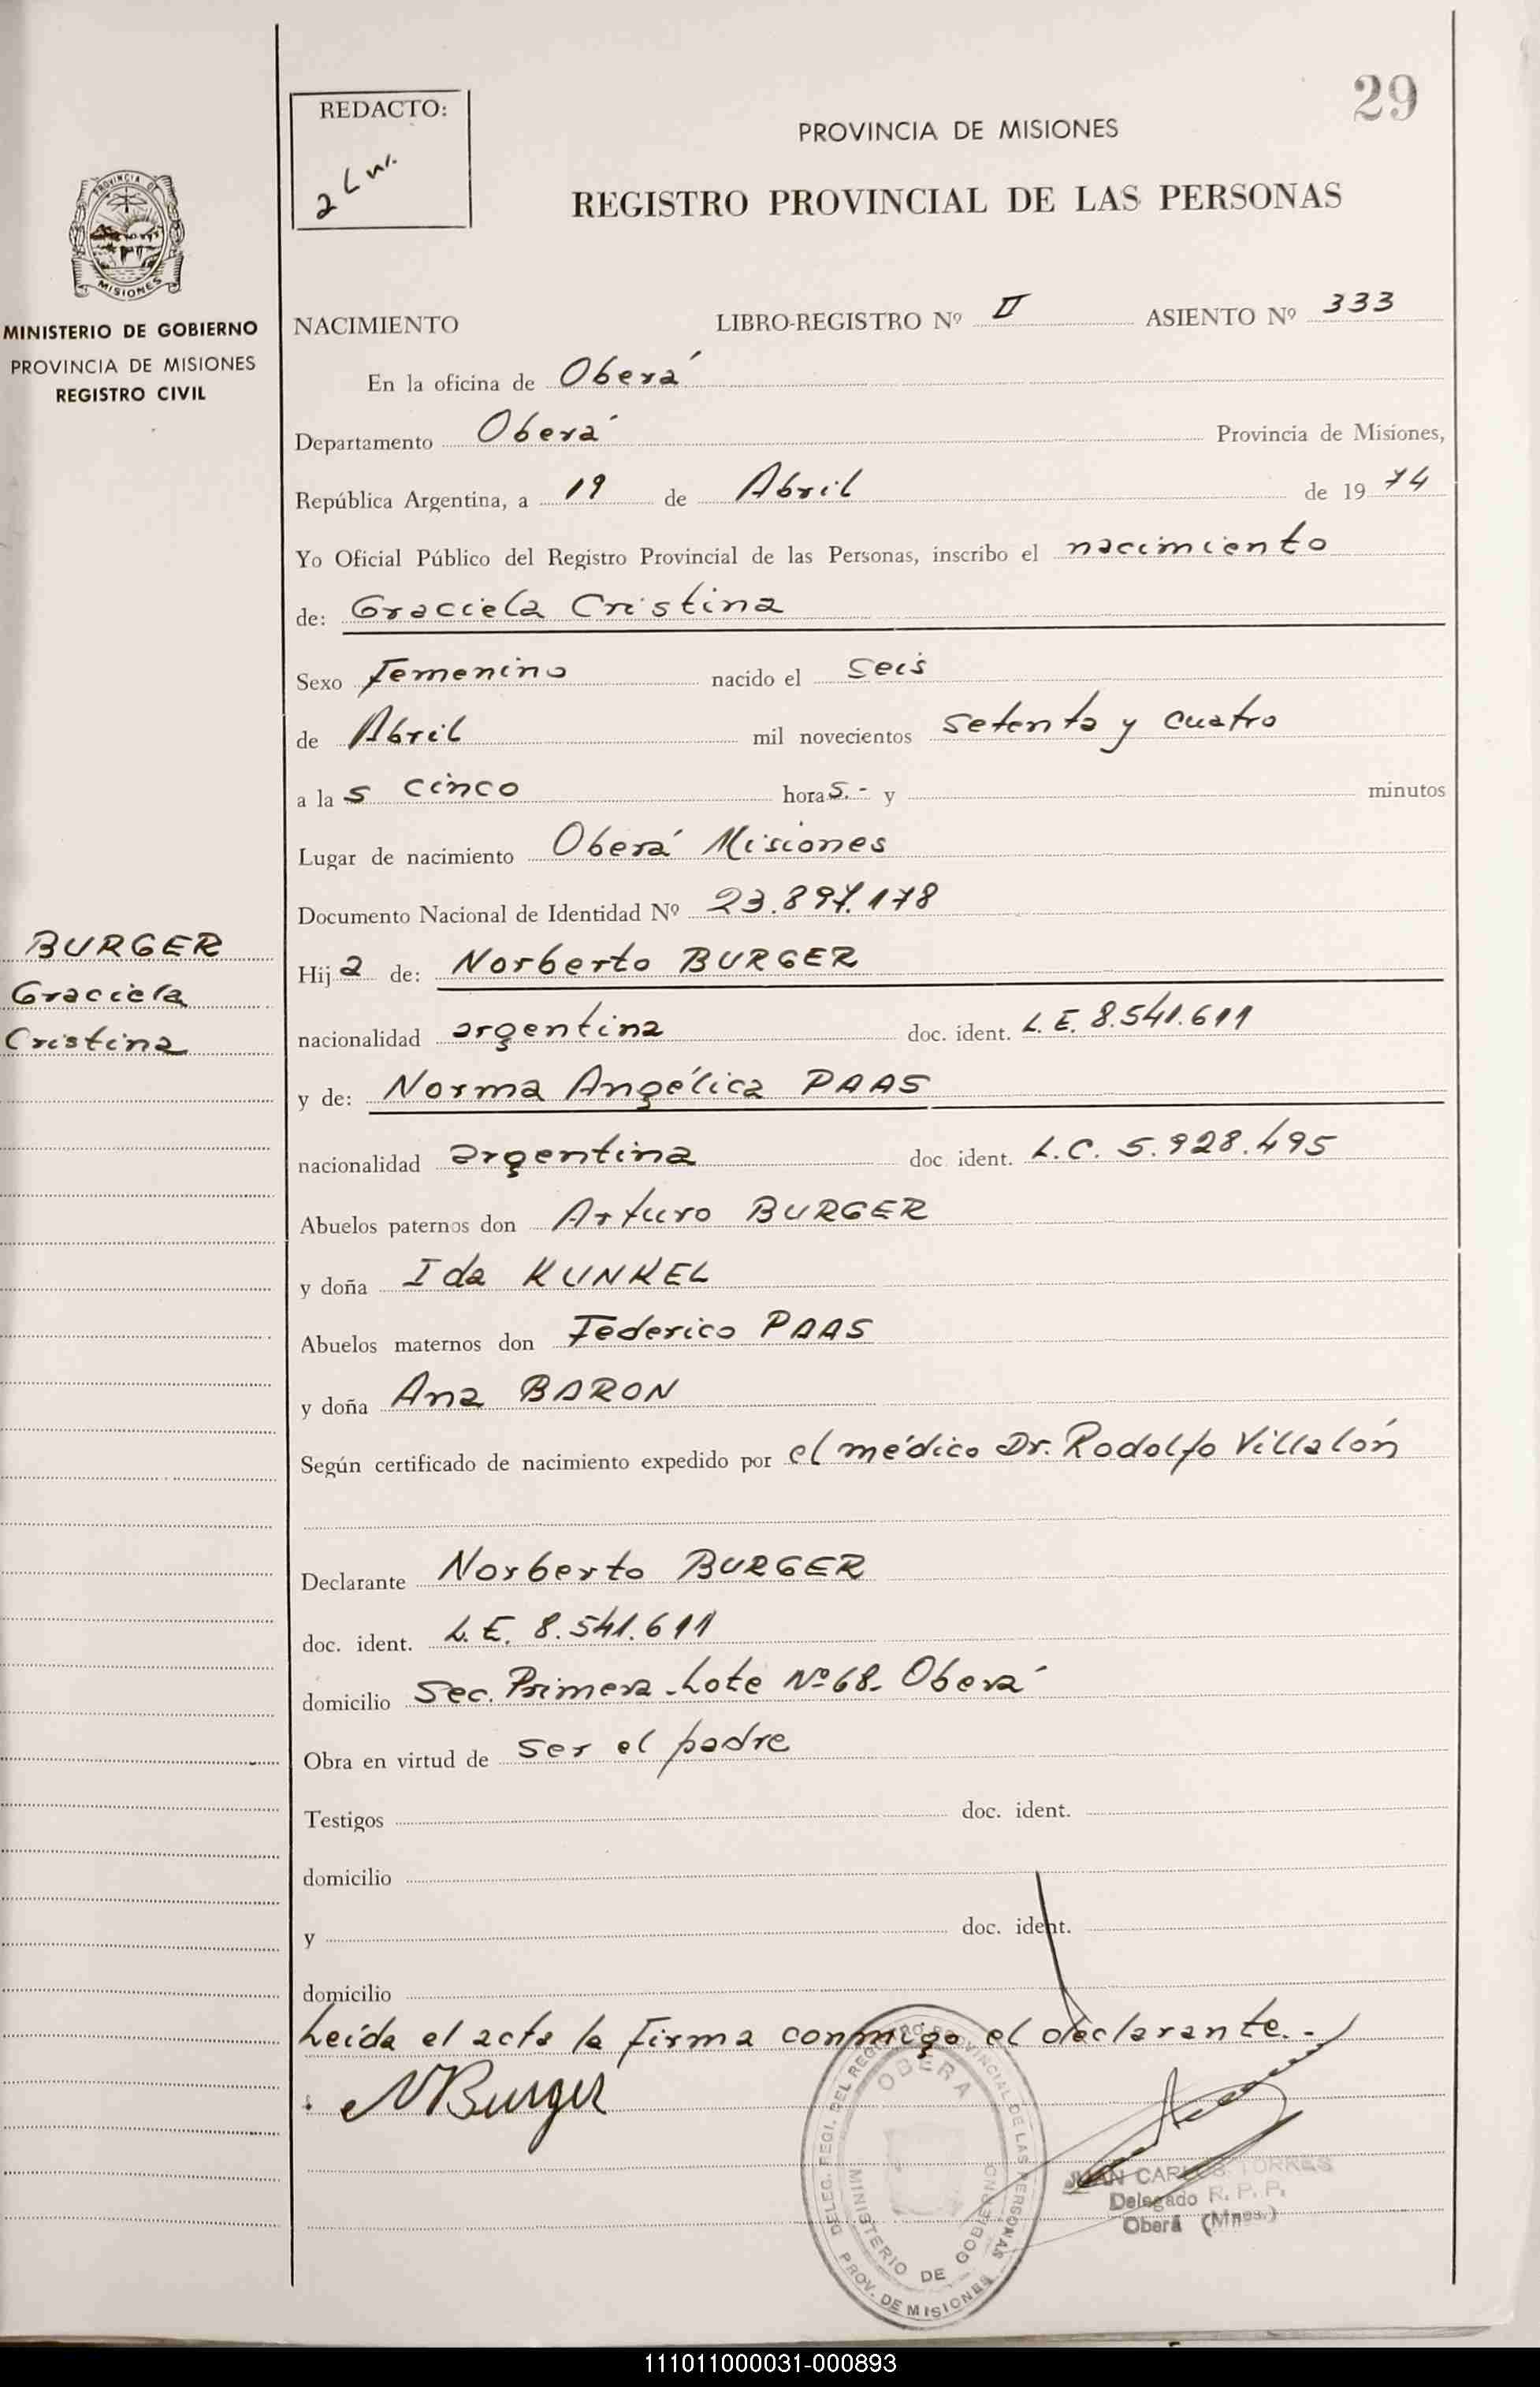 29
REDACTO:
PROVINCIA DE MISIONES
REGISTRO PROVINCIAL DE LAS PERSONAS
PROVINCIA DE
MISIONES
MINISTERIO DE GOBIERNO
PROVINCIA DE MISIONES
REGISTRO CIVIL
NACIMIENTO LIBRO-REGISTRO Nº II ASIENTO Nº 333
En la oficina de Oberá
Departamento Oberá Provincia de Misiones,
República Argentina, a 19 de Abril de 19 74
Yo Oficial Público del Registro Provincial de las Personas, inscribo el nacimiento
de: Graciela Cristina
Sexo Femenino nacido el seis
de Abril mil novecientos setenta y cuatro
a la s cinco hora s.- y minutos
Lugar de nacimiento Oberá Misiones
Documento Nacional de Identidad Nº 23.897.178
BURGER
Graciela
Cristina
Hij a de: Norberto BURGER
nacionalidad argentina doc. ident. L.E. 8.541.611
y de: Norma Angélica PAAS
nacionalidad argentina doc ident. L.C. 5.928.495
Abuelos paternos don Arturo BURGER
y doña Ida KUNKEL
Abuelos maternos don Federico PAAS
y doña Ana BARON
Según certificado de nacimiento expedido por el médico Dr. Rodolfo Villalón
Declarante Norberto BURGER
doc. ident. L.E. 8.541.611
domicilio Sec. Primera - Lote Nº 68 - Oberá
Obra en virtud de ser el padre
Testigos doc. ident.
domicilio
y doc. ident.
domicilio
Leída el acta la firma conmigo el declarante.-
N Burger
DELEG. REGI. DEL REGISTRO PROVINCIAL DE LAS PERSONAS
OBERA
MINISTERIO DE GOBIERNO
PROV. DE MISIONES
JUAN CARLOS TORRES
Delegado R. P. P.
Oberá (Mnes.)
111011000031-000893